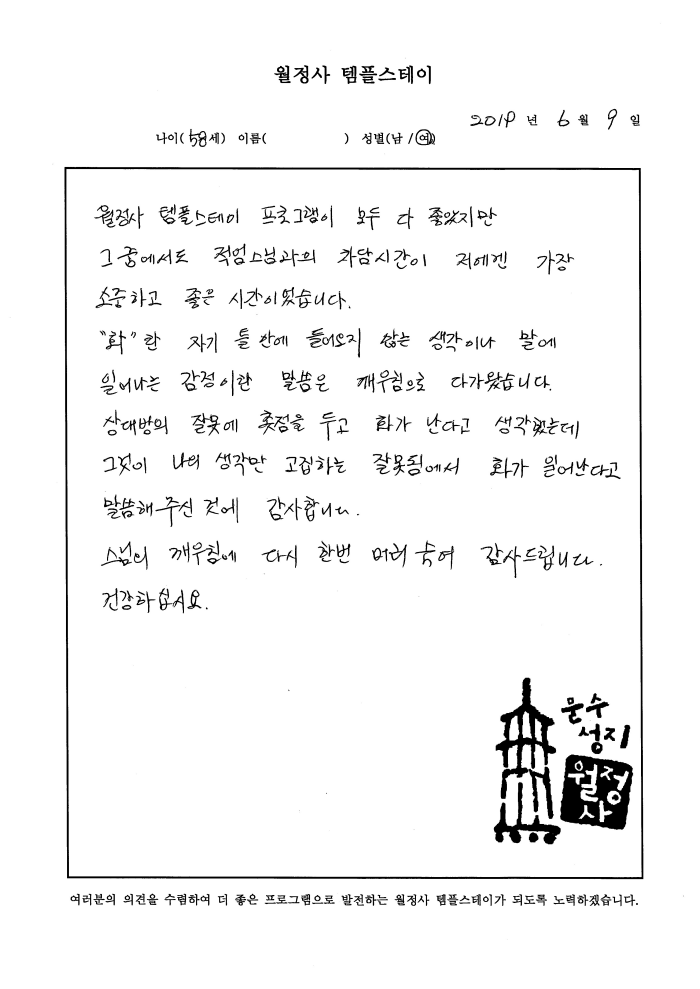 월정사 템플스테이
2019 년 6 월 9 일
나이( 58세) 이름( ) 성별(남 / 여)
월정사 템플스테이 프로그램이 모두 다 좋았지만
그 중에서도 적엄스님과의 차담시간이 저에겐 가장
소중하고 좋은 시간이었습니다.
"화"란 자기 틀 안에 들어오지 않는 생각이나 말에
일어나는 감정이란 말씀은 깨우침으로 다가왔습니다.
상대방의 잘못에 촛점을 두고 화가 난다고 생각했는데
그것이 나의 생각만 고집하는 잘못됨에서 화가 일어난다고
말씀해 주신 것에 감사합니다.
스님의 깨우침에 다시 한번 머리 숙여 감사드립니다.
건강하십시요.
문수
성지
월정
사
여러분의 의견을 수렴하여 더 좋은 프로그램으로 발전하는 월정사 템플스테이가 되도록 노력하겠습니다.